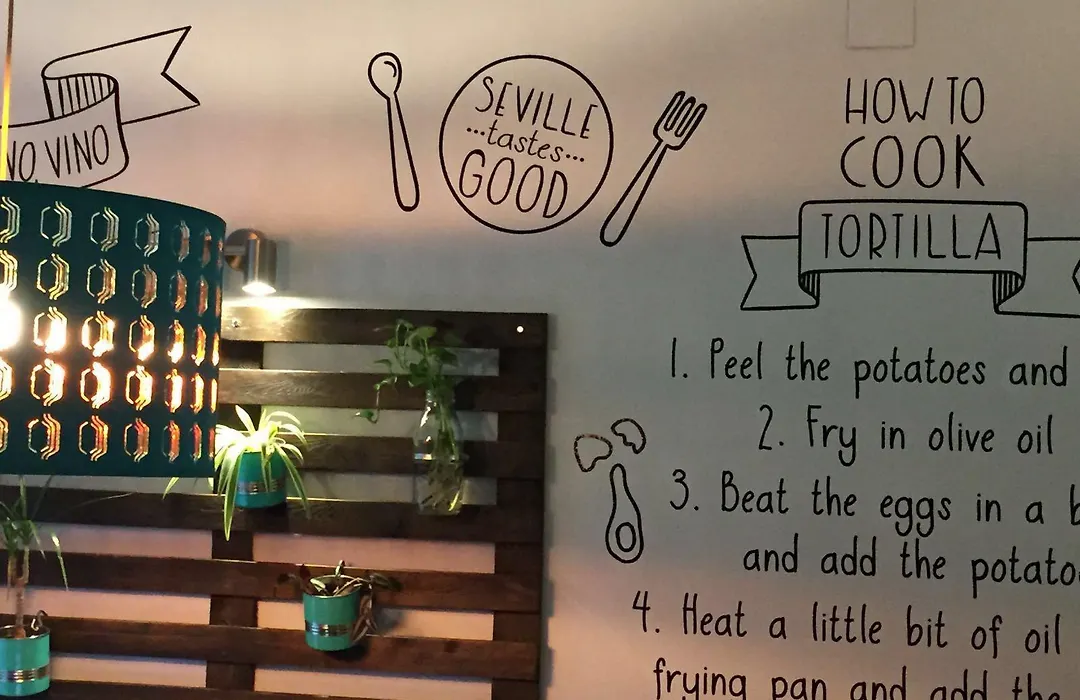 VINO
SEVILLE
...tastes...
GOOD
HOW TO
COOK
TORTILLA
1. Peel the potatoes and
2. Fry in olive oil
3. Beat the eggs in a
and add the
4. Heat a little bit of oil
frying pan and add the